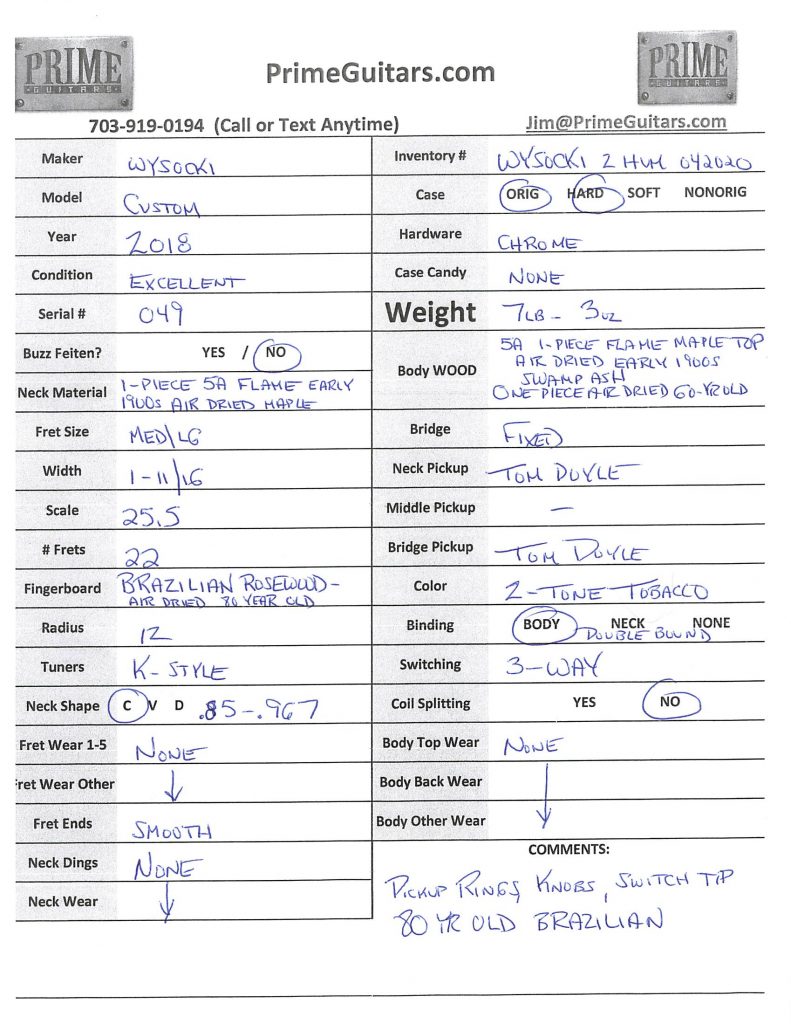 PRIME
GUITARS
PrimeGuitars.com
PRIME
GUITARS
703-919-0194 (Call or Text Anytime)
Jim@PrimeGuitars.com
Maker WYSOCKI
Model CUSTOM
Year 2018
Condition EXCELLENT
Serial # 049
Buzz Feiten? YES / NO
Neck Material 1-PIECE 5A FLAME EARLY
1900s AIR DRIED MAPLE
Fret Size MED/LG
Width 1-11/16
Scale 25.5
# Frets 22
Fingerboard BRAZILIAN ROSEWOOD-
AIR DRIED 80 YEAR OLD
Radius 12
Tuners K-STYLE
Neck Shape C V D .85-.967
Fret Wear 1-5 NONE
Fret Wear Other
Fret Ends SMOOTH
Neck Dings NONE
Neck Wear
Inventory # WYSOCKI 2 HUM 042020
Case ORIG HARD SOFT NONORIG
Hardware CHROME
Case Candy NONE
Weight 7LB - 3oz
Body WOOD 5A 1-PIECE FLAME MAPLE TOP
AIR DRIED EARLY 1900s
SWAMP ASH
ONE PIECE AIR DRIED 60-YR OLD
Bridge FIXED
Neck Pickup TOM DOYLE
Middle Pickup —
Bridge Pickup TOM DOYLE
Color 2-TONE TOBACCO
Binding BODY NECK NONE
DOUBLE BOUND
Switching 3-WAY
Coil Splitting YES NO
Body Top Wear NONE
Body Back Wear
Body Other Wear
COMMENTS:
PICKUP RINGS, KNOBS, SWITCH TIP
80 YR OLD BRAZILIAN